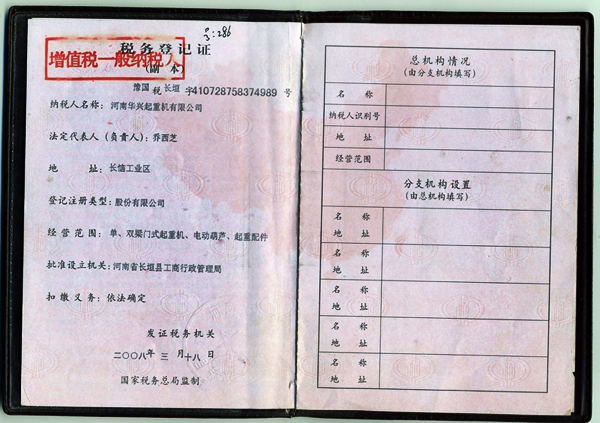 号:286
税务登记证
增值税一般纳税人
(副本)
豫国 税 长垣 字410728758374989 号
纳税人名称: 河南华兴起重机有限公司
法定代表人(负责人): 乔西芝
地 址: 长恼工业区
登记注册类型: 股份有限公司
经营范围: 单、双梁门式起重机、电动葫芦、起重配件
批准设立机关: 河南省长垣县工商行政管理局
扣缴义务: 依法确定
发证税务机关
二〇〇八年 三 月十八日
国家税务总局监制
总机构情况
(由分支机构填写)
名 称
纳税人识别号
地 址
经营范围
分支机构设置
(由总机构填写)
名 称
地 址
名 称
地 址
名 称
地 址
名 称
地 址
名 称
地 址